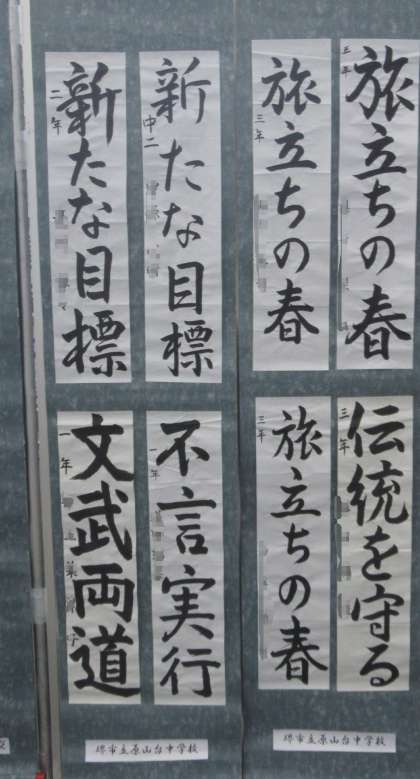 旅立ちの春
三年
旅立ちの春
三年
新たな目標
中二
新たな目標
二年
伝統を守る
三年
旅立ちの春
三年
不言実行
一年
文武両道
一年
堺市立原山台中学校
堺市立原山台中学校